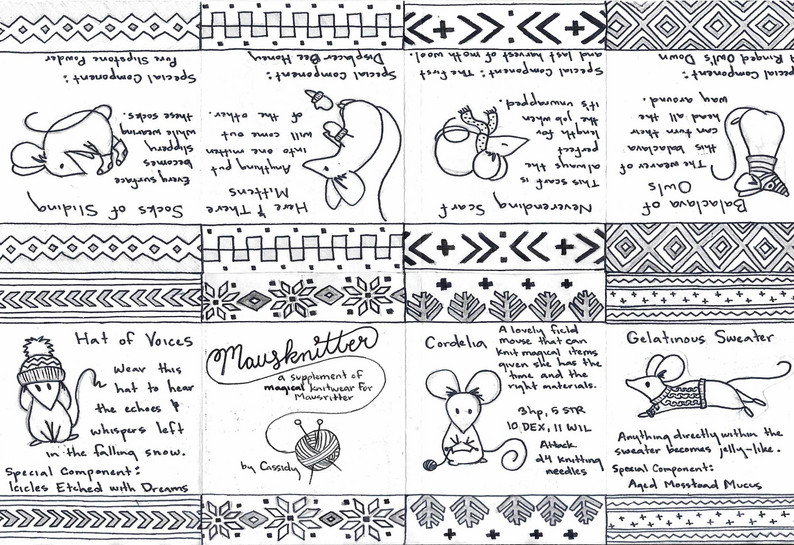 Socks of Sliding
Every surface
becomes
slippery
while wearing
these socks.
Special Component:
Pure Slipstone Powder
Here & There
Mittens
Anything put
into one mitten
will come out
of the other.
Special Component:
Displacer Bee Honey
Neverending Scarf
This scarf is
always the
perfect
length for
the job when
it's unwrapped.
Special Component: The first
and last harvest of moth wool.
Balaclava of
Owls
The wearer of
this balaclava
can turn their
head all the
way around.
Special Component:
A Ringed Owl's Down
Hat of Voices
Wear this
hat to hear
the echoes &
whispers left
in the falling snow.
Special Component:
Icicles Etched with Dreams
Mausknitter
a supplement of
magical knitwear for
Mausritter
by Cassidy
Cordelia
A lovely field
mouse that can
knit magical items
given she has the
time and the
right materials.
3hp, 5 STR
10 DEX, 11 WIL
Attack
d4 knitting
needles
Gelatinous Sweater
Anything directly within the
sweater becomes jelly-like.
Special Component:
Aged Mosstoad Mucus